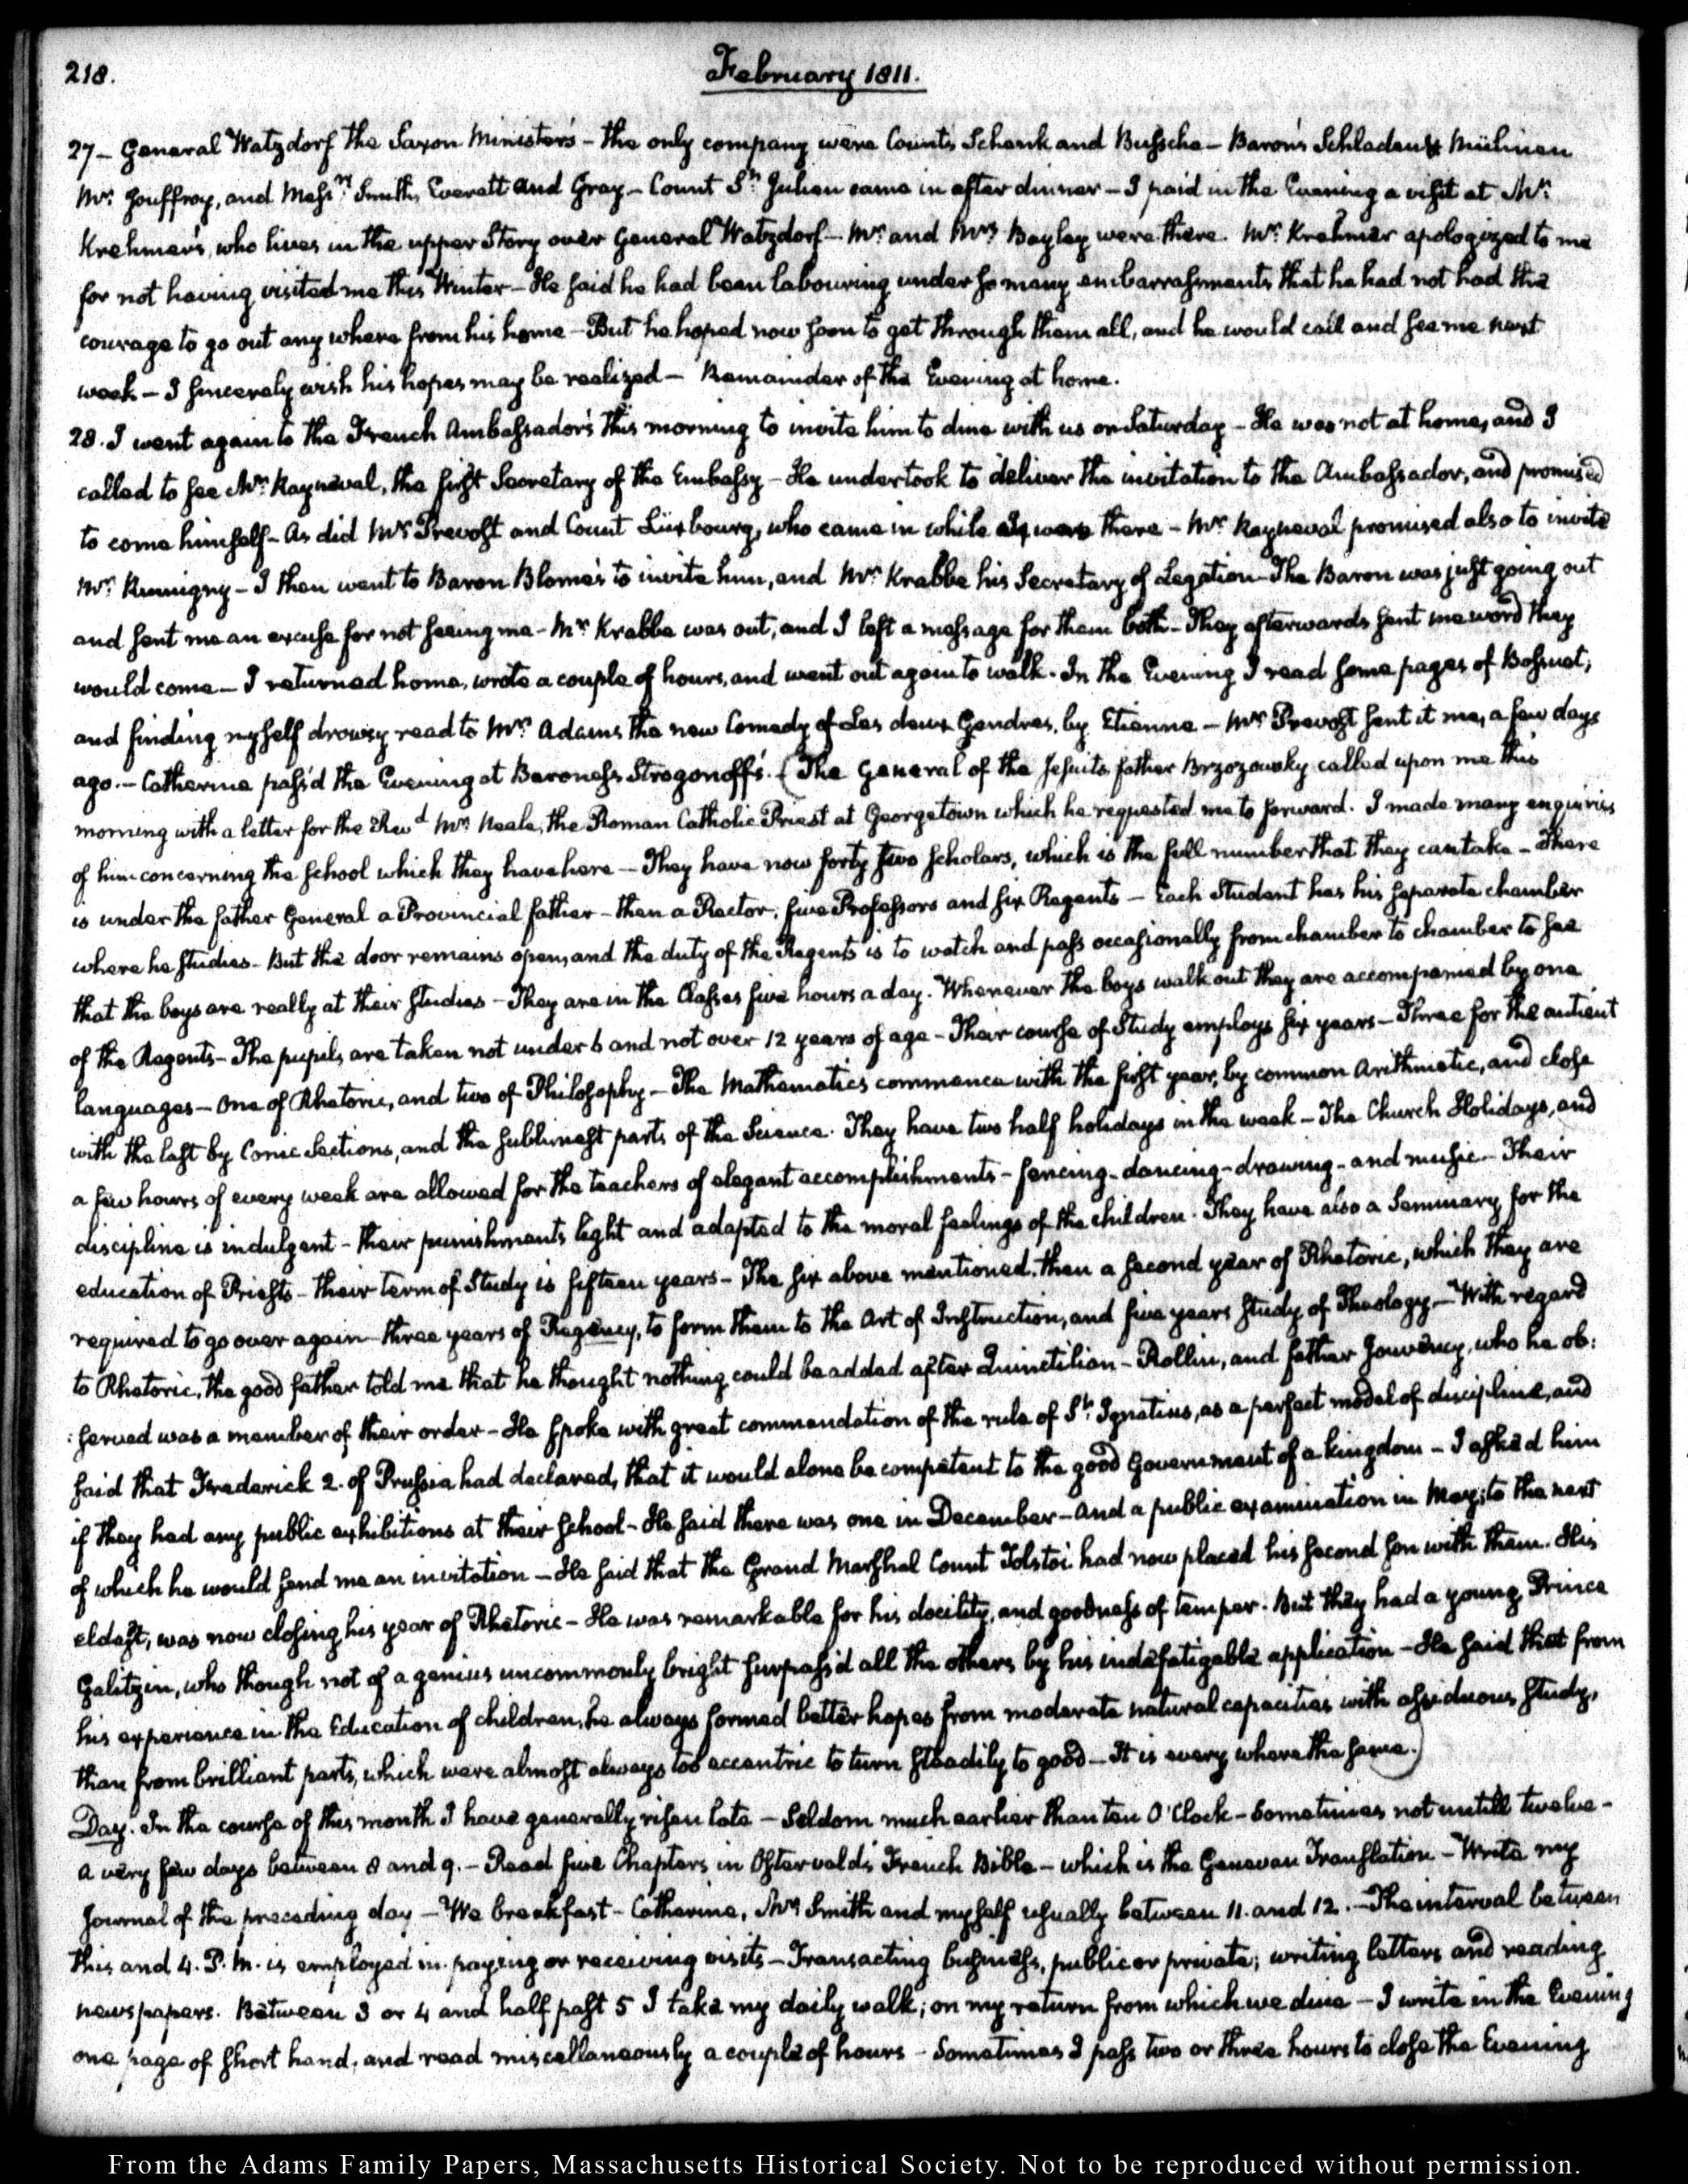 218.
February 1811.
27 – General Watzdorf the Saxon Minister's – the only company were Counts Schenk and Bussche – Barons Schladen & Mülinen
Mr. Jouffroy, and Messrs. Smith, Everett and Gray – Count St. Julien came in after dinner – I paid in the Evening a visit at Mr.
Krehmer's, who lives in the upper Story over General Watzdorf – Mr. and Mrs. Bayley were there. Mr. Krehmer apologized to me
for not having visited me this Winter – He said he had been labouring under so many embarrassments that he had not had the
courage to go out any where from his home – But he hoped now soon to get through them all, and he would call and see me next
week – I sincerely wish his hopes may be realized – Remainder of the Evening at home.
28. I went again to the French Ambassador's this morning to invite him to dine with us on Saturday – He was not at home, and I
called to see Mr. Rayneval, the first Secretary of the Embassy – He undertook to deliver the invitation to the Ambassador, and promised
to come himself – As did Mr. Prevost and Count Luxbourg, who came in while I was there – Mr. Rayneval promised also to invite
Mr. Rumigny – I then went to Baron Blome's to invite him, and Mr. Krabbe his Secretary of Legation – The Baron was just going out
and sent me an excuse for not seeing me – Mr. Krabbe was out, and I left a message for them both – They afterwards sent me word they
would come – I returned home, wrote a couple of hours, and went out again to walk. In the Evening I read some pages of Bossuet;
and finding myself drowsy read to Mrs. Adams the new Comedy of Les deux Gendres, by Etienne – Mr. Prevost sent it me, a few days
ago. – Catherine pass'd the Evening at Baroness Strogonoff's. (The General of the Jesuits father Brzozowsky called upon me this
morning with a letter for the Revd. Mr. Neale, the Roman Catholic Priest at Georgetown which he requested me to forward. I made many enquiries
of him concerning the school which they have here – They have now forty two scholars, which is the full number that they can take – There
is under the father General a Provincial father – then a Rector, five Professors and six Regents – Each Student has his separate chamber
where he studies – But the door remains open, and the duty of the Regents is to watch and pass occasionally from chamber to chamber to see
that the boys are really at their studies – They are in the Classes five hours a day. Whenever the boys walk out they are accompanied by one
of the Regents – The pupils are taken not under 6 and not over 12 years of age – Their course of Study employs six years – Three for the antient
languages – One of Rhetoric, and two of Philosophy – The Mathematics commence with the first year, by common Arithmetic, and close
with the last by Conic Sections, and the sublimest parts of the Science. They have two half holidays in the week – The Church Holidays, and
a few hours of every week are allowed for the teachers of elegant accomplishments – fencing – dancing – drawing – and music – Their
discipline is indulgent – their punishments light and adapted to the moral feelings of the children. They have also a Seminary for the
education of Priests – their term of Study is fifteen years – The six above mentioned, then a second year of Rhetoric, which they are
required to go over again – three years of Regency, to form them to the Art of Instruction, and five years study of Theology – With regard
to Rhetoric, the good father told me that he thought nothing could be added after Quinctilian – Rollin, and father Jouvency, who he ob:
:served was a member of their order – He spoke with great commendation of the rule of St. Ignatius, as a perfect model of discipline, and
said that Frederick 2. of Prussia had declared, that it would alone be competent to the good Government of a kingdom – I ask'd him
if they had any public exhibitions at their school – He said there was one in December – and a public examination in May; to the next
of which he would send me an invitation – He said that the Grand Marshal Count Tolstoi had now placed his second son with them. His
eldest, was now closing his year of Rhetoric – He was remarkable for his docility, and goodness of temper. But they had a young Prince
Galitzin, who though not of a genius uncommonly bright surpass'd all the others by his indefatigable application – He said that from
his experience in the Education of children, he always formed better hopes from moderate natural capacities with assiduous study,
than from brilliant parts, which were almost always too eccentric to turn steadily to good – It is every where the same.)
Day. In the course of this month I have generally risen late – Seldom much earlier than ten O'Clock – Sometimes not untill twelve –
a very few days between 8 and 9. – Read five Chapters in Ostervald's French Bible – which is the Genevan Translation – Write my
Journal of the preceding day – We breakfast – Catherine, Mr. Smith and myself usually between 11. and 12. – The interval between
this and 4. P.M. is employed in paying or receiving visits – Transacting business, public or private; writing letters and reading
newspapers. Between 3 or 4 and half past 5 I take my daily walk; on my return from which we dine – I write in the Evening
one page of short hand, and read miscellaneously a couple of hours – Sometimes I pass two or three hours to close the Evening
From the Adams Family Papers, Massachusetts Historical Society. Not to be reproduced without permission.